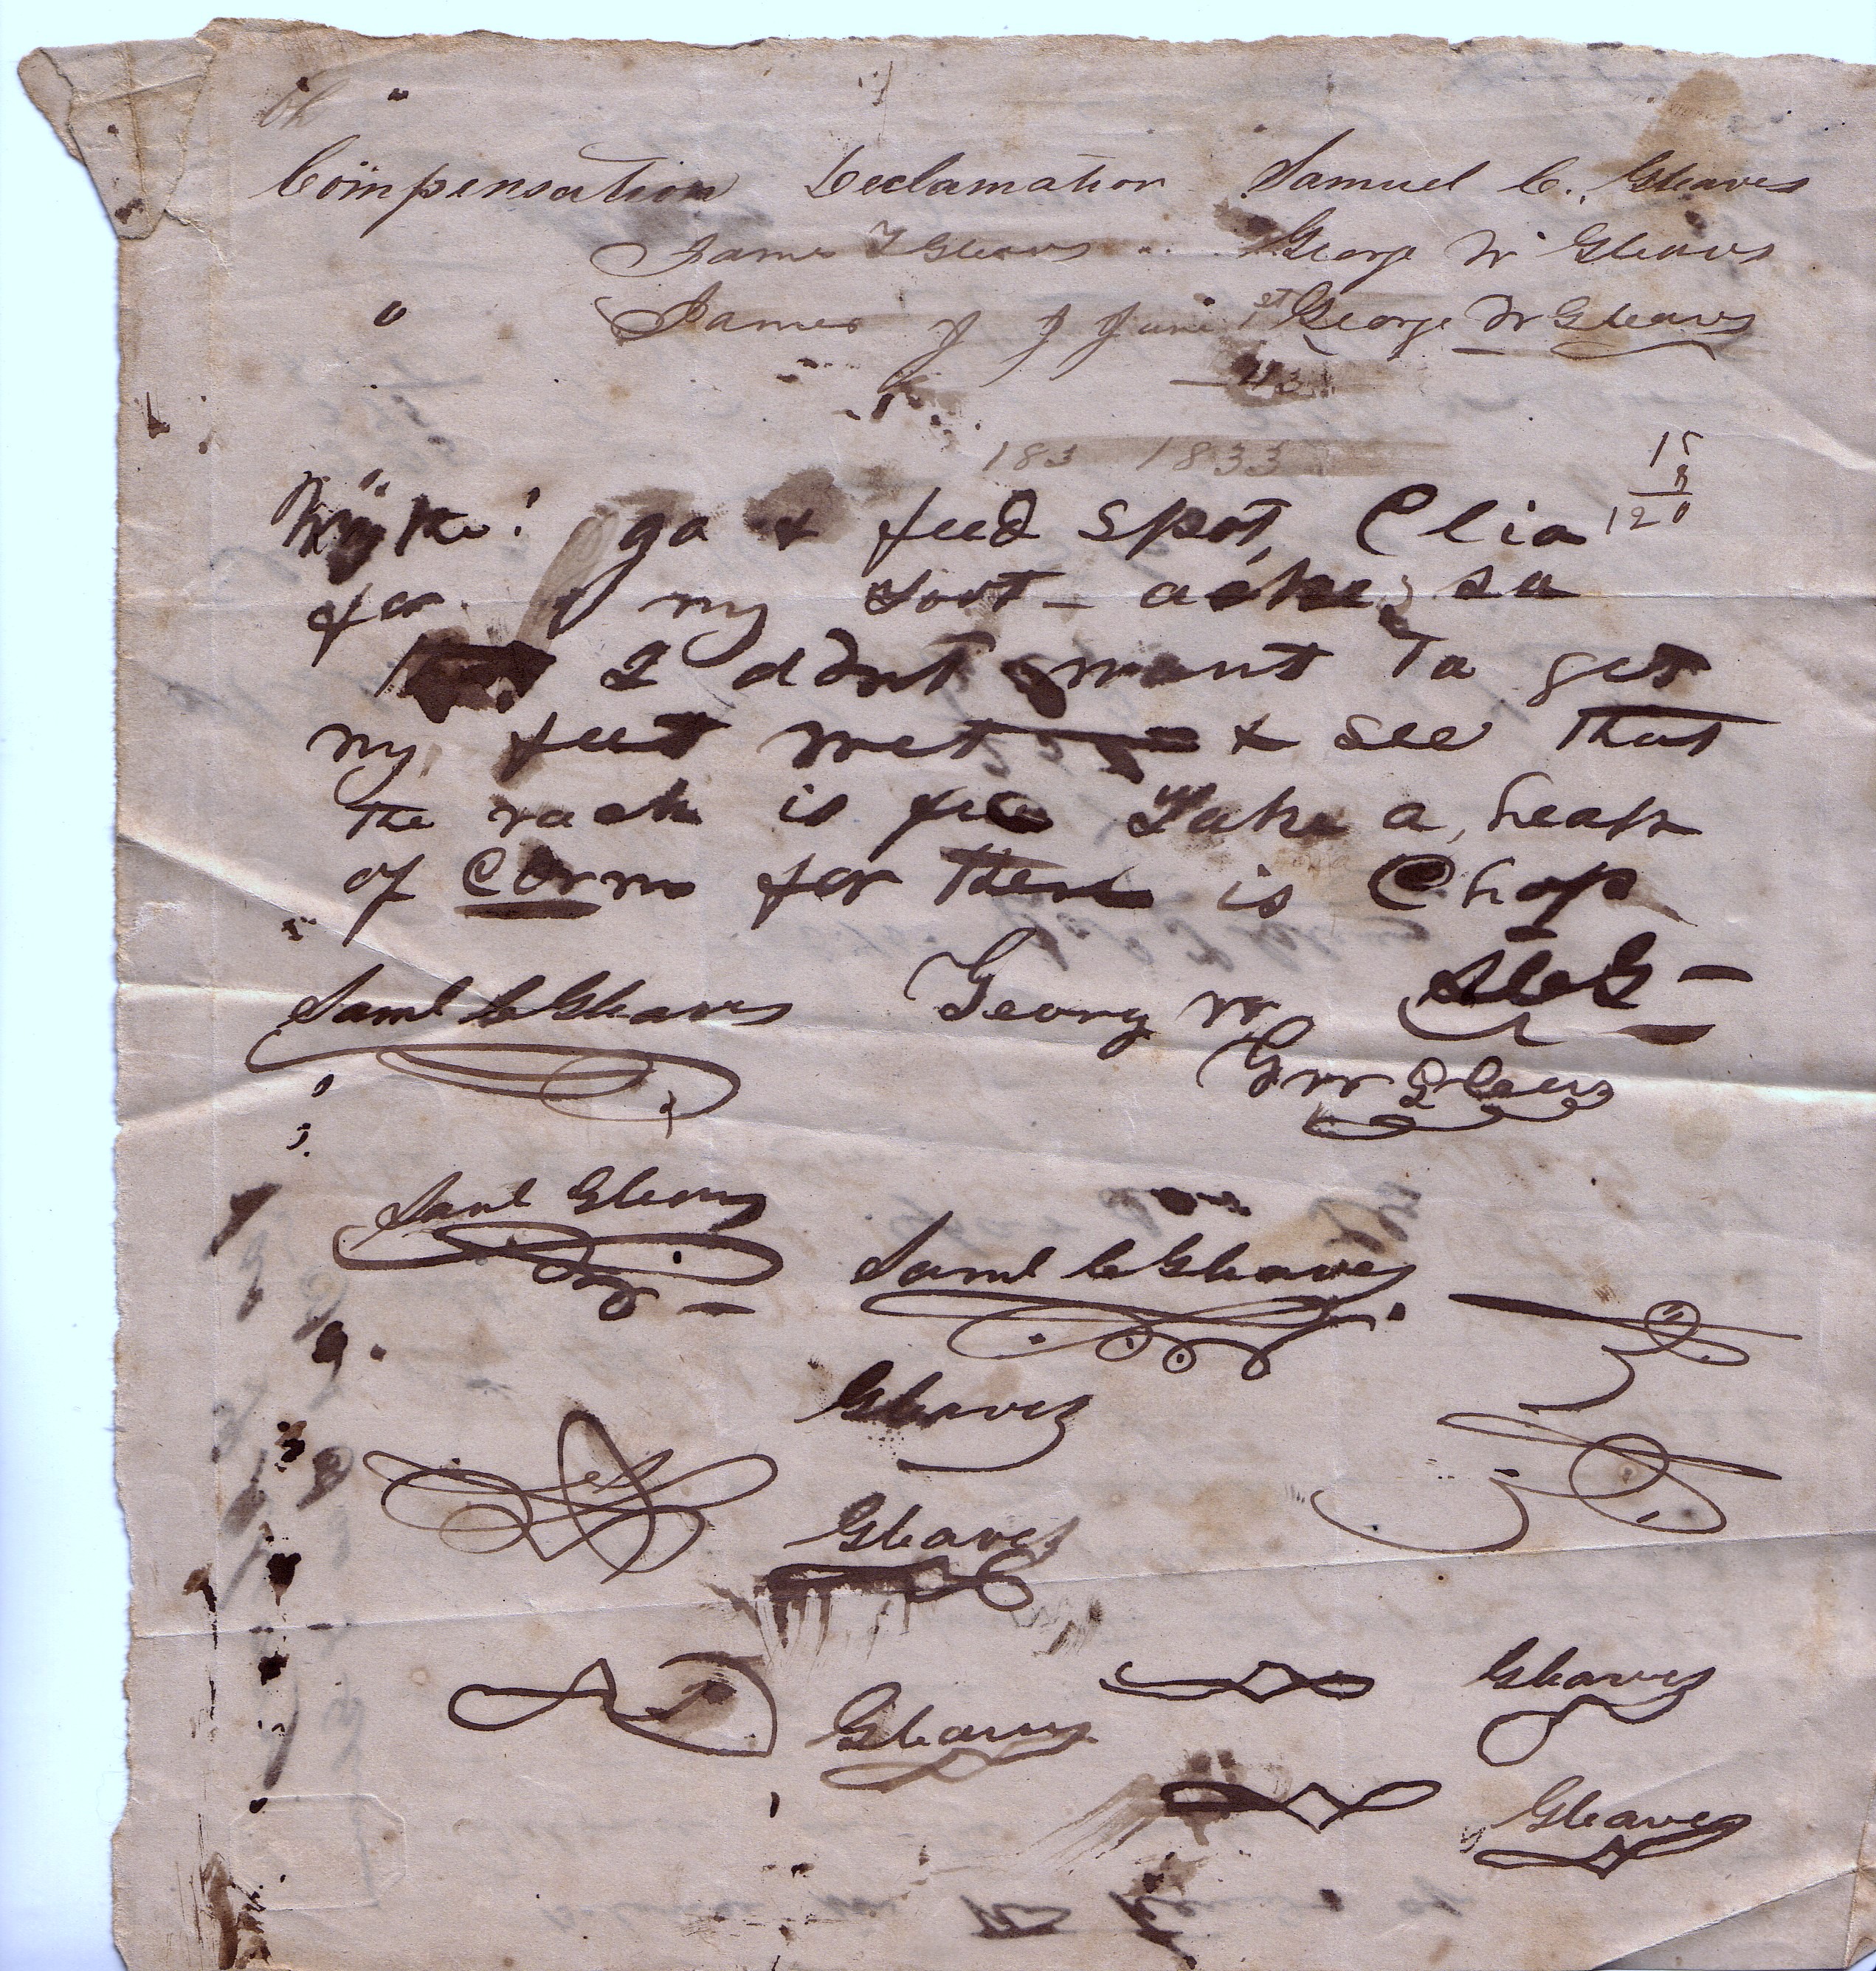 Compensation Declamation Samuel C. Gleaves
James T Gleaves George W Gleaves
James J J June 1st George W Gleaves
43
183 1833
15
8
120
go & feed Spot, Clia
for my foot - ache, so
I dont want to get
my feet wet & see that
the rack is full Take a heap
of Corn for there is Chop
Saml C Gleaves George W
G W Gleaves
Saml Gleaves
Saml C Gleaves
Gleaves
Gleaves
Gleaves
Gleaves
Gleaves